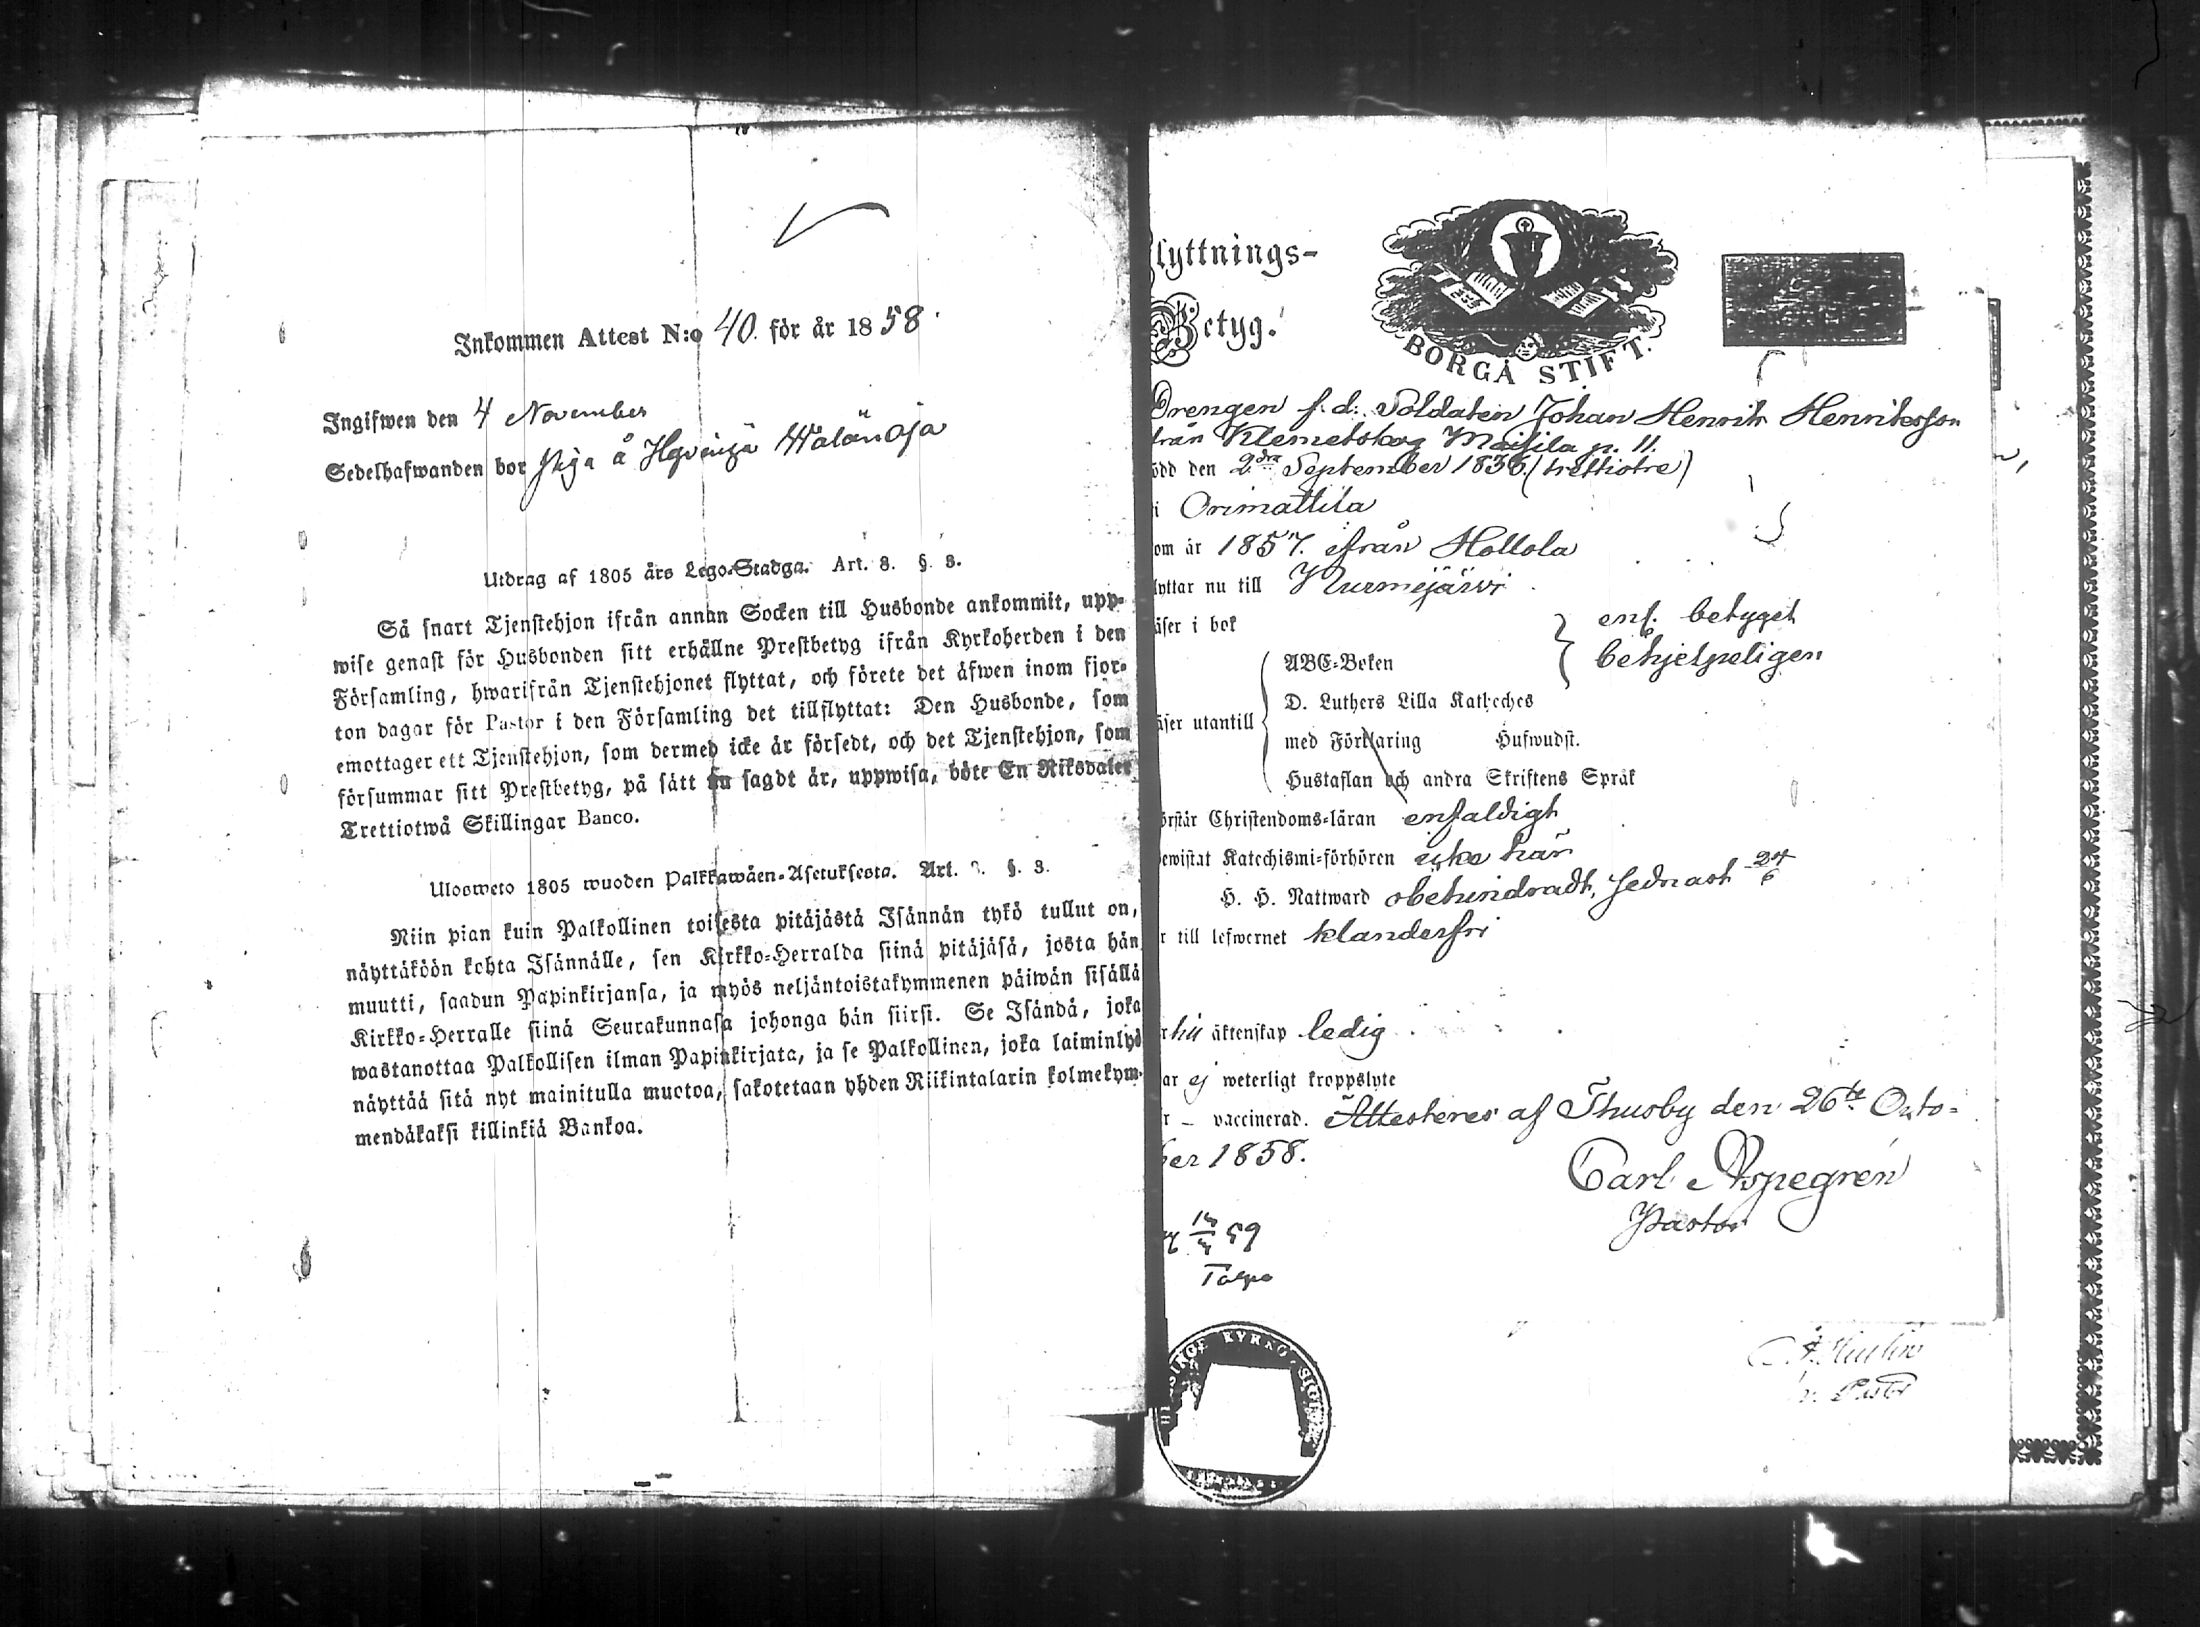 Inkommen Attest N:o 40. för år 1858.
Ingifwen den 4 November
Sedelhafwanden bor å Hyvinge
Utdrag af 1805 års Lego-Stadga. Art. 8. §. 3.
Så snart Tjenstehjon ifrån annan Socken till Husbonde ankommit, upp-
wise genast för Husbonden sitt erhållne Prestbetyg ifrån Kyrkoherden i den
Församling, hwarifrån Tjenstehjonet flyttat, och förete det äfwen inom fjor-
ton dagar för Pastor i den Församling det tillflyttat: Den Husbonde, som
emottager ett Tjenstehjon, som dermed icke är försedt, och det Tjenstehjon, som
försummar sitt Prestbetyg, på sätt nu sagdt är, uppwisa, böte En Riksdaler
Trettiotwå Skillingar Banco.
Ulosweto 1805 wuoden Palkkawäen-Asetuksesta. Art. §. 3.
Niin pian kuin Palkollinen toisesta pitäjästä Isännän tykö tullut on,
näyttäköön kohta Isännälle, sen Kirkko-Herralda siinä pitäjäsä, josta hän
muutti, saadun Papinkirjansa, ja myös neljäntoistakymmenen päiwän sisällä
Kirkko-Herralle siinä Seurakunnasa johonga hän siirsi. Se Isändä, joka
wastanottaa Palkollisen ilman Papinkirjata, ja se Palkollinen, joka laiminlyö
näyttää sitä nyt mainitulla muotoa, sakotetaan yhden Riikintalarin kolmekym-
mendäkaksi killinkiä Bankoa.
lyttnings-
Betyg.
BORGÅ STIFT.
Drengen f. d. Soldaten Johan Henrik Henriksson
från Klemetskog p. 11.
ödd den 2dra September 1833. (trettiotre)
i Orimattila
om år 1857. från Hollola
lyttar nu till Nurmijärvi
äser i bok
enl. betyget
behjelpeligen
äser utantill
ABC-Boken
D. Luthers Lilla Katheches
med Förklaring Hufwudst.
Hustaflan och andra Skriftens Språk
örstår Christendoms-läran enfaldigt
ewistat Katechismi-förhören icke här
H. H. Nattward obehindradt, sednast 24/6
r till lefwernet klanderfri
r till äktenskap ledig
ar ej weterligt kroppslyte
r – vaccinerad. Attesteres af Thusby den 26te Octo-
ber 1858.
Carl Aspegrén
Pastor
59
KYRKO SIGILL